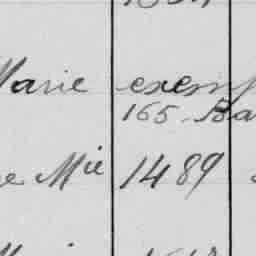 Marie exemp
165 Ba
e Mie 1489